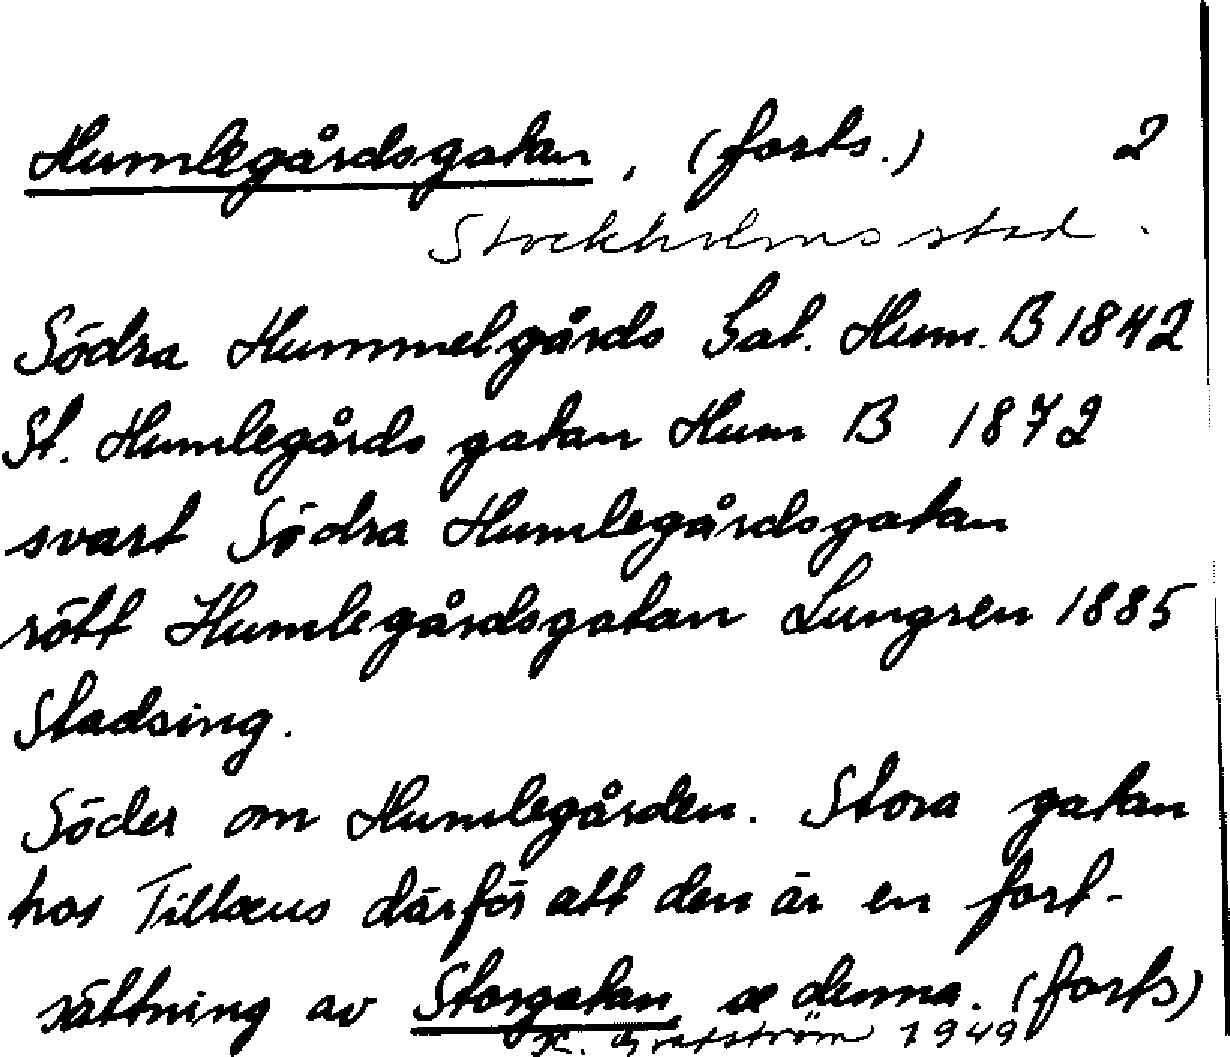 Humlegårdsgatan, (forts.) 2
Stockholms stad.
Södra Hummelgårds Gat. Hum. B 1842
St. Humlegårds gatan Hum B 1872
svart Södra Humlegårdsgatan
rött Humlegårdsgatan Lungren 1885
Stadsing.
Söder om Humlegården. Stora gatan
hos Tillæus därför att den är en fort-
sättning av Storgatan, se denna. (forts)
K. G. 1949